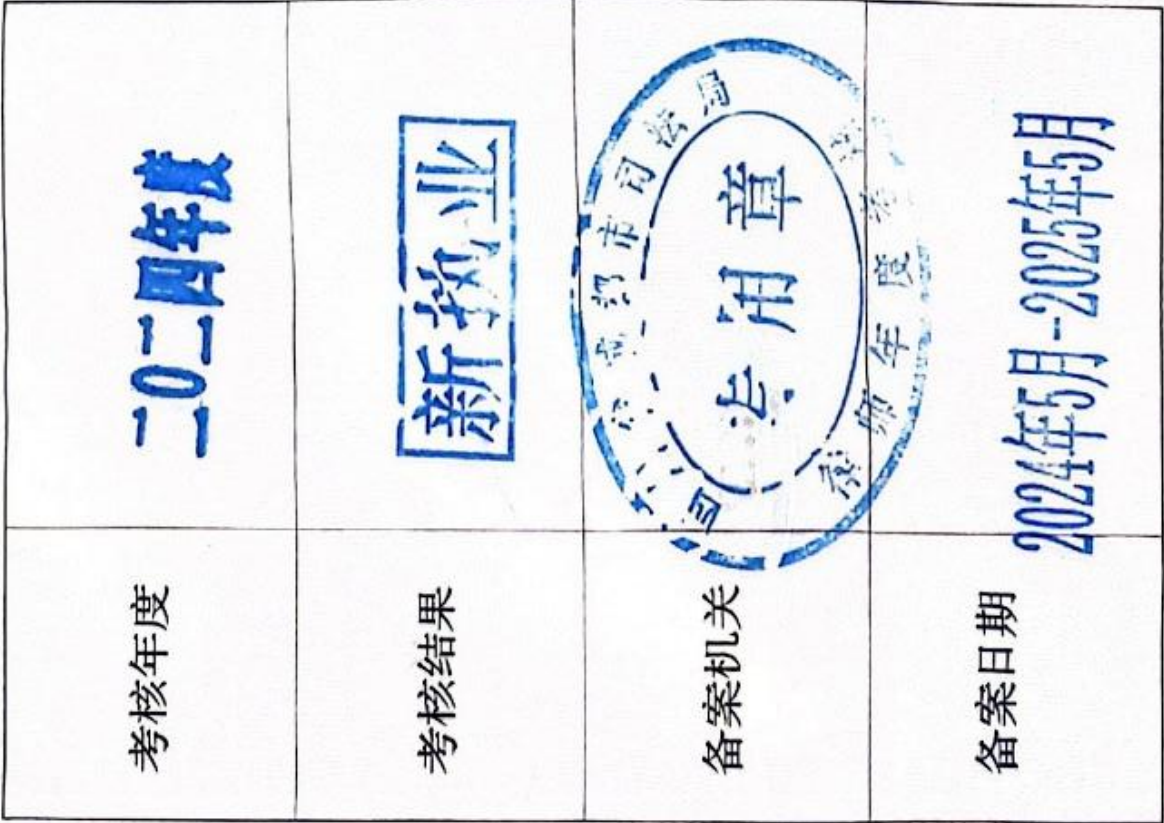 考核年度
二0二四年度
考核结果
新执业
备案机关
四川省成都市司法局
专用章
律师年度考
备案日期
2024年5月-2025年5月